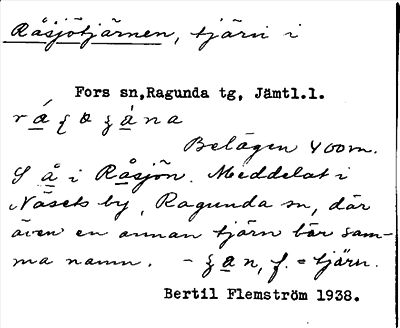 Råsjötjärnen, tjärn i
Fors sn, Ragunda tg, Jämtl.l.
Belägen 400m.
S å i Råsjön. Meddelat i
Näsets by, Ragunda sn, där
även en annan tjärn bär sam-
ma namn. - n, f. = tjärn.
Bertil Flemström 1938.